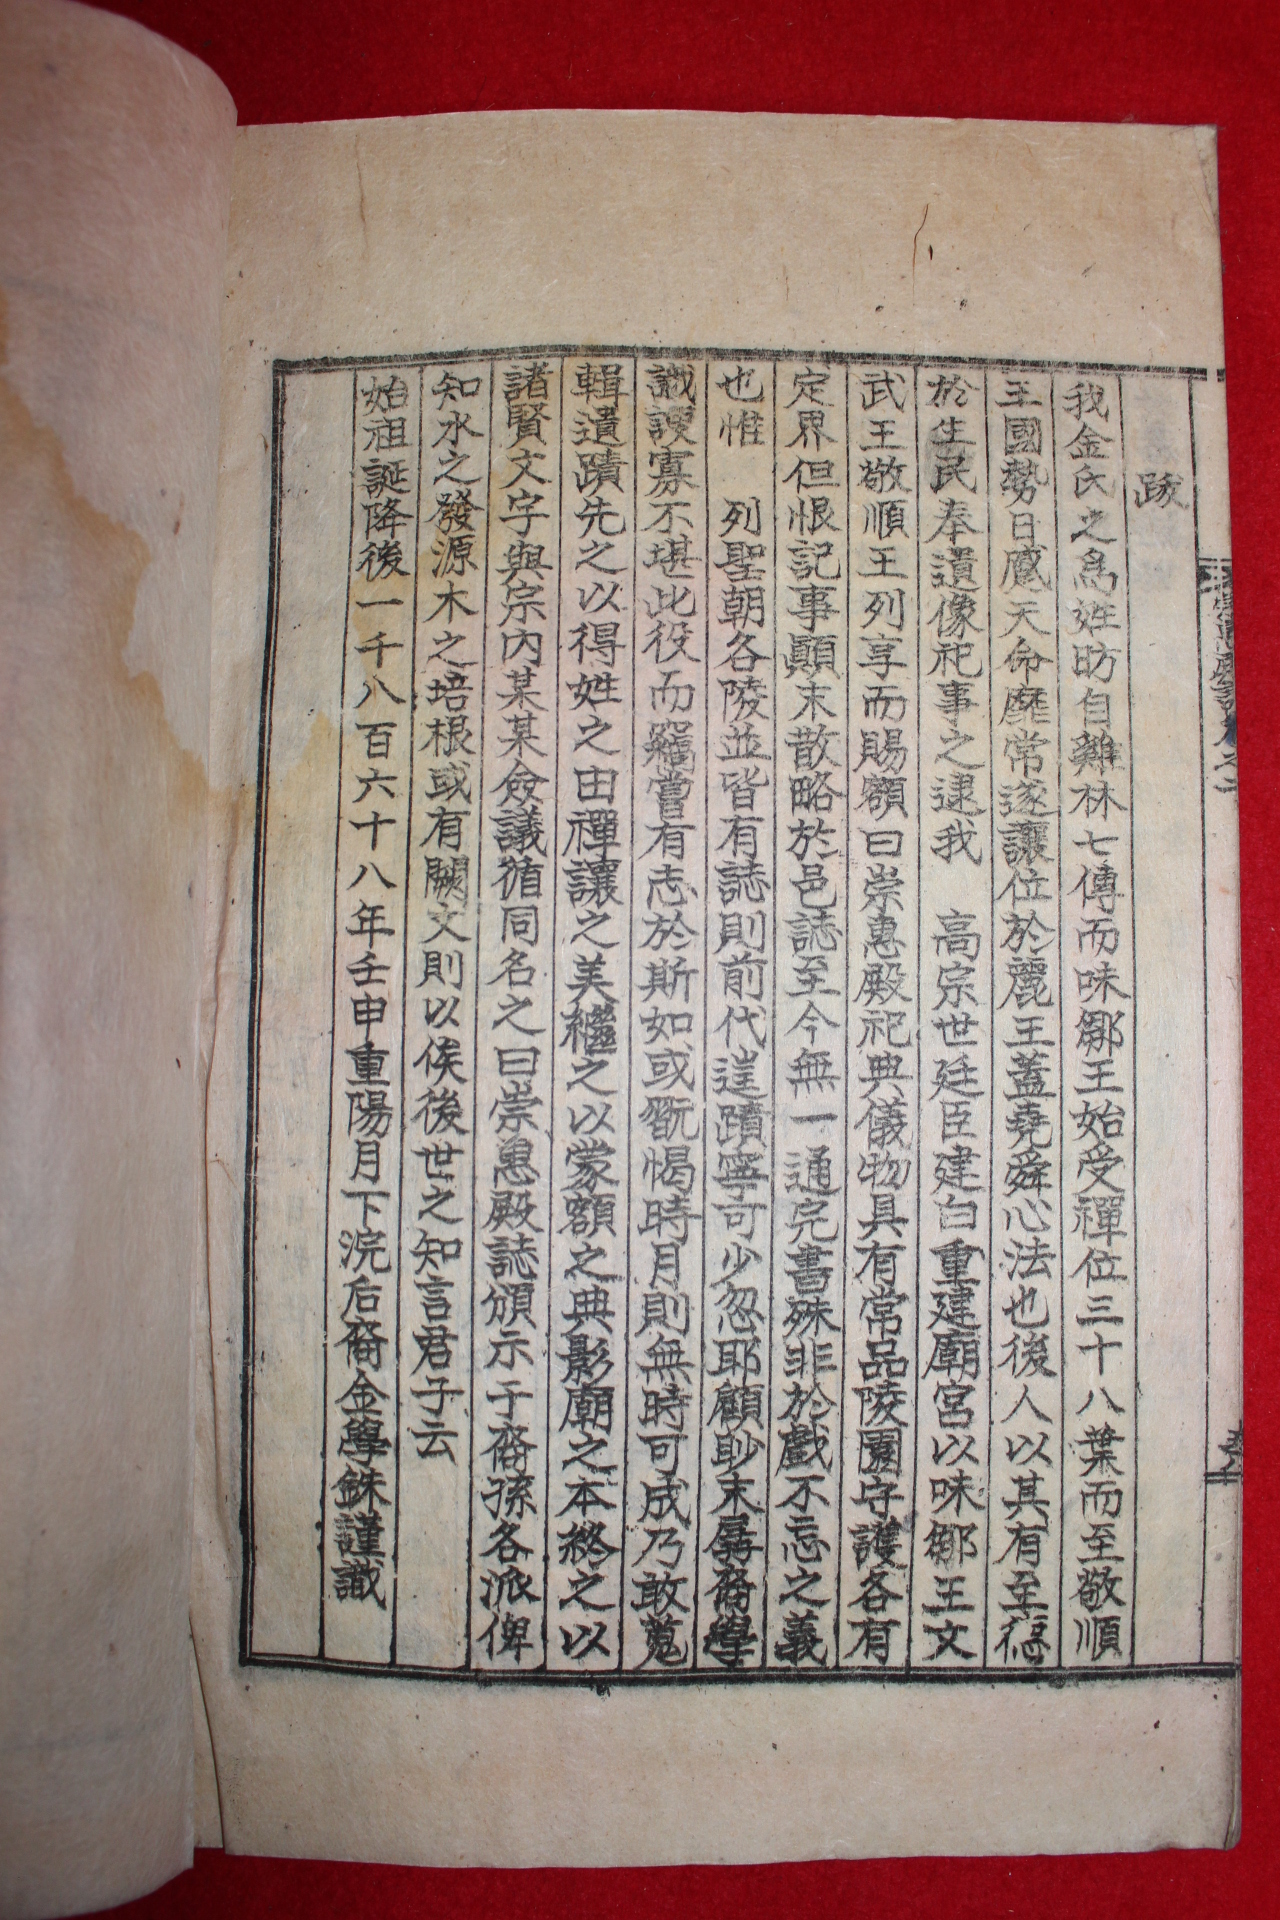 跋
我金氏之爲姓昉自雞林七傳而味鄒王始受禪位三十八葉而至敬順
王國勢日蹙天命靡常遂讓位於麗王蓋堯舜心法也後人以其有至德
於生民奉遺像祀事之逮我 高宗世廷臣建白重建廟宮以味鄒王文
武王敬順王列享而賜額曰崇惠殿祀典儀物具有常品陵園守護各有
定界但恨記事顚末散略於邑誌至今無一通完書殊非於戲不忘之義
也惟 列聖朝各陵並皆有誌則前代蹟寧可少忽耶顧眇末孱裔學
識謏寡不堪此役而竊嘗有志於斯如或翫愒時月則無時可成乃敢蒐
輯遺蹟先之以得姓之由禪讓之美繼之以蒙額之典影廟之本終之以
諸賢文字與宗內某某僉議循同名之曰崇惠殿誌頒示于裔孫各派俾
知水之發源木之培根或有闕文則以俟後世之知言君子云
始祖誕降後一千八百六十八年壬申重陽月下浣后裔金學銖謹識